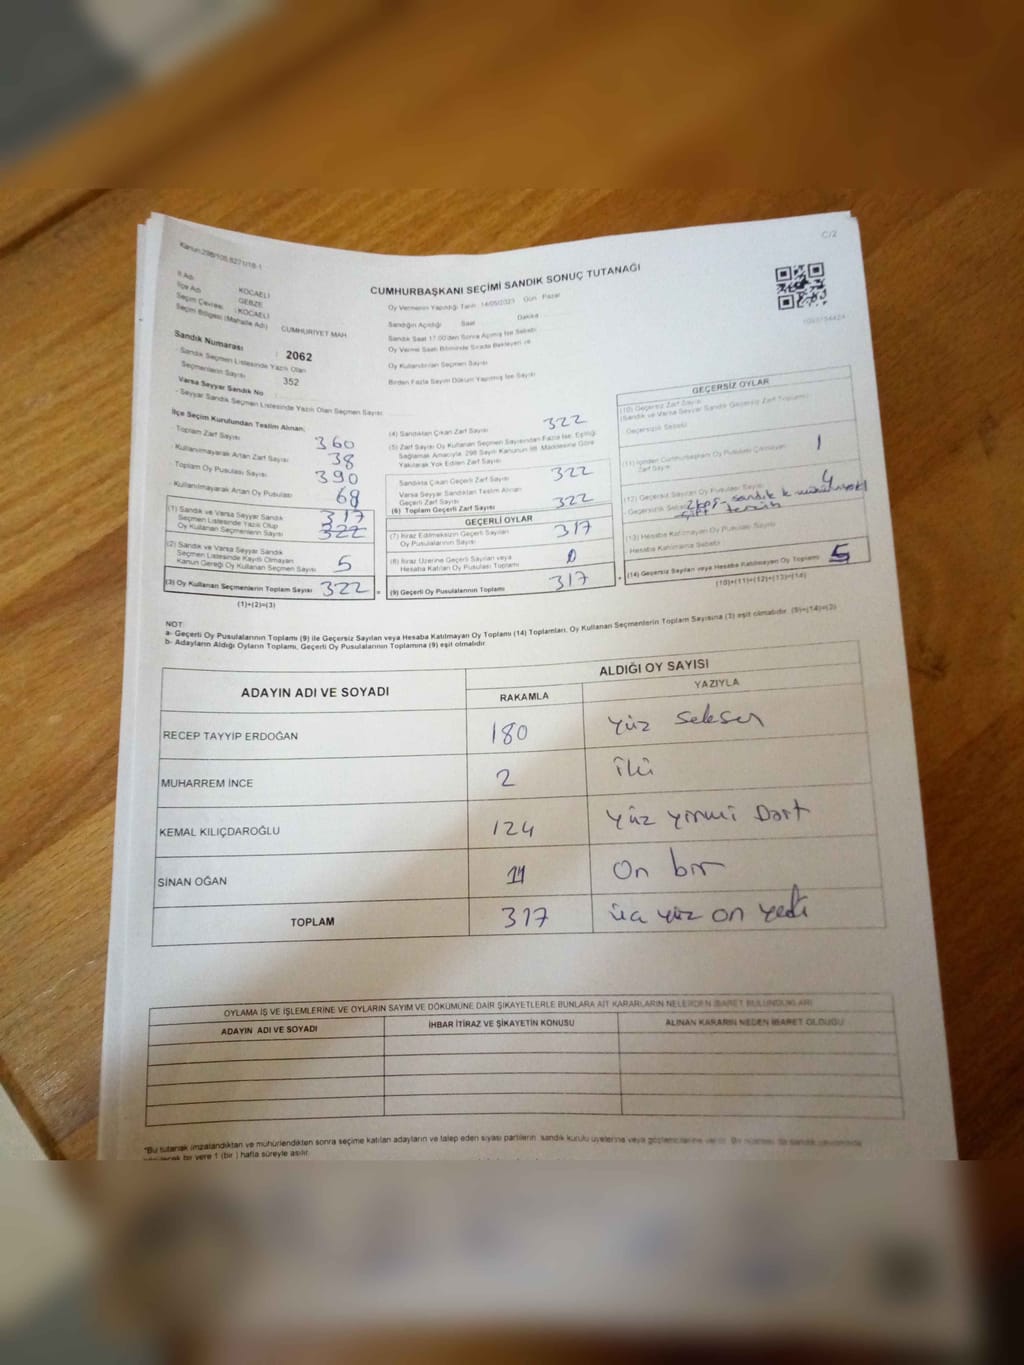 C/2
Kanun:298/105,6271/18-1
CUMHURBAŞKANI SEÇİMİ SANDIK SONUÇ TUTANAĞI
İl Adı : KOCAELİ
İlçe Adı : GEBZE
Seçim Çevresi : KOCAELİ
Seçim Bölgesi (Mahalle Adı) CUMHURİYET MAH
Sandık Numarası : 2062
- Sandık Seçmen Listesinde Yazılı Olan
Seçmenlerin Sayısı 352
Varsa Seyyar Sandık No
- Seyyar Sandık Seçmen Listesinde Yazılı Olan Seçmen Sayısı
Oy Vermenin Yapıldığı Tarih 14/05/2023 Gün Pazar
Sandığın Açıldığı Saat Dakika
Sandık Saat 17.00'den Sonra Açılmış İse Sebebi
Oy Verme Saati Bitiminde Sırada Bekleyen
Oy Kullandırılan Seçmen Sayısı
Birden Fazla Sayım Döküm Yapılmış İse Sayısı
İlçe Seçim Kurulundan Teslim Alınan;
- Toplam Zarf Sayısı 360
- Kullanılmayarak Artan Zarf Sayısı 38
- Toplam Oy Pusulası Sayısı 390
- Kullanılmayarak Artan Oy Pusulası 68
(1) Sandık ve Varsa Seyyar Sandık
Seçmen Listesinde Yazılı Olup
Oy Kullanan Seçmenlerin Sayısı
317
322
(2) Sandık ve Varsa Seyyar Sandık
Seçmen Listesinde Kayıtlı Olmayan
Kanun Gereği Oy Kullanan Seçmen Sayısı 5
(3) Oy Kullanan Seçmenlerin Toplam Sayısı 322 =
(1)+(2)=(3)
(4) Sandıktan Çıkan Zarf Sayısı 322
(5) Zarf Sayısı Oy Kullanan Seçmen Sayısından Fazla İse, Eşitliği
Sağlamak Amacıyla, 298 Sayılı Kanunun 98. Maddesine Göre
Yakılarak Yok Edilen Zarf Sayısı
Sandıkta Çıkan Geçerli Zarf Sayısı 322
Varsa Seyyar Sandıktan Teslim Alınan
Geçerli Zarf Sayısı
(6) Toplam Geçerli Zarf Sayısı 322
GEÇERLİ OYLAR
(7) İtiraz Edilmeksizin Geçerli Sayılan
Oy Pusulalarının Sayısı 317
(8) İtiraz Üzerine Geçerli Sayılan veya
Hesaba Katılan Oy Pusulası Toplamı 0
(9) Geçerli Oy Pusulalarının Toplamı 317 +
GEÇERSİZ OYLAR
(10) Geçersiz Zarf Sayısı
(Sandık ve Varsa Seyyar Sandık Geçersiz Zarf Toplamı)
Geçersizlik Sebebi
(11) İçinden Cumhurbaşkanı Oy Pusulası Çıkmayan
Zarf Sayısı 1
(12) Geçersiz Sayılan Oy Pusulası Sayısı 4
Geçersizlik Sebebi
(13) Hesaba Katılmayan Oy Pusulası Sayısı
Hesaba Katılmama Sebebi
(14) Geçersiz Sayılan veya Hesaba Katılmayan Oy Toplamı 5
(10)+(11)+(12)+(13)=(14)
NOT:
a- Geçerli Oy Pusulalarının Toplamı (9) ile Geçersiz Sayılan veya Hesaba Katılmayan Oy Toplamı (14) Toplamları, Oy Kullanan Seçmenlerin Toplam Sayısına (3) eşit olmalıdır. (9)+(14)=(3)
b- Adayların Aldığı Oyların Toplamı, Geçerli Oy Pusulalarının Toplamına (9) eşit olmalıdır.
ADAYIN ADI VE SOYADI ALDIĞI OY SAYISI
RAKAMLA YAZIYLA
RECEP TAYYİP ERDOĞAN 180 Yüz seksen
MUHARREM İNCE 2 İki
KEMAL KILIÇDAROĞLU 124 Yüz yirmi Dört
SİNAN OĞAN 11 On bir
TOPLAM 317 üç yüz on yedi
OYLAMA İŞ VE İŞLEMLERİNE VE OYLARIN SAYIM VE DÖKÜMÜNE DAİR ŞİKAYETLERLE BUNLARA AİT KARARLARIN NELERDEN İBARET BULUNDUKLARI
ADAYIN ADI VE SOYADI İHBAR İTİRAZ VE ŞİKAYETİN KONUSU ALINAN KARARIN NEDEN İBARET OLDUĞU
*Bu tutanak imzalandıktan ve mühürlendikten sonra seçime katılan adayların ve talep eden siyasi partilerin sandık kurulu üyelerine veya gözlemcilerine verilir. Bir
bir yere 1 (bir ) hafta süreyle asılır.